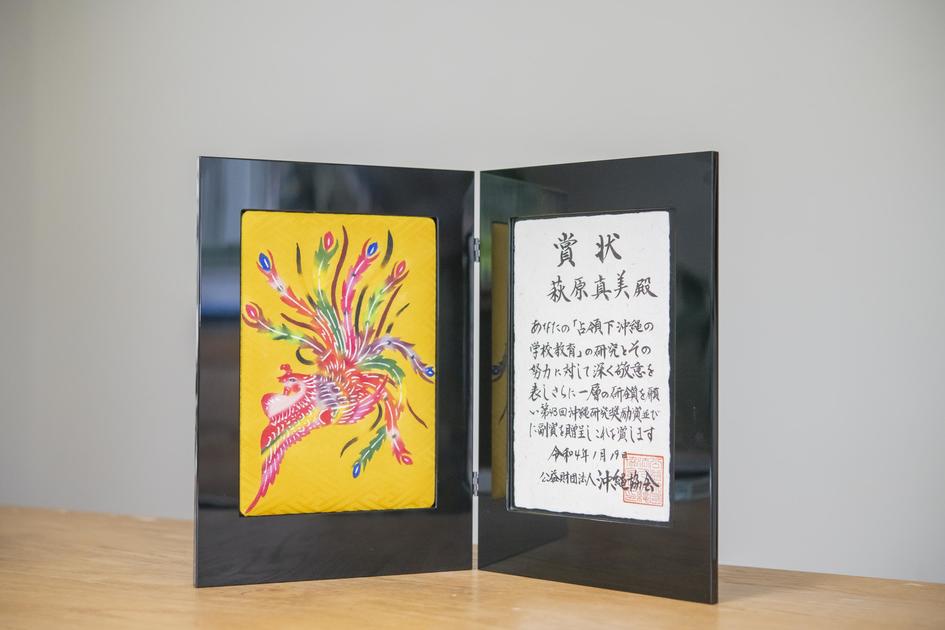 賞状
萩原真美殿
あなたの「占領下沖縄の
学校教育」の研究とその
努力に対して深く敬意を
表しさらに一層の研鑚を願
い第43回沖縄研究奨励賞並び
に副賞を贈呈しこれを賞します
令和4年1月19日
公益財団法人沖縄協会